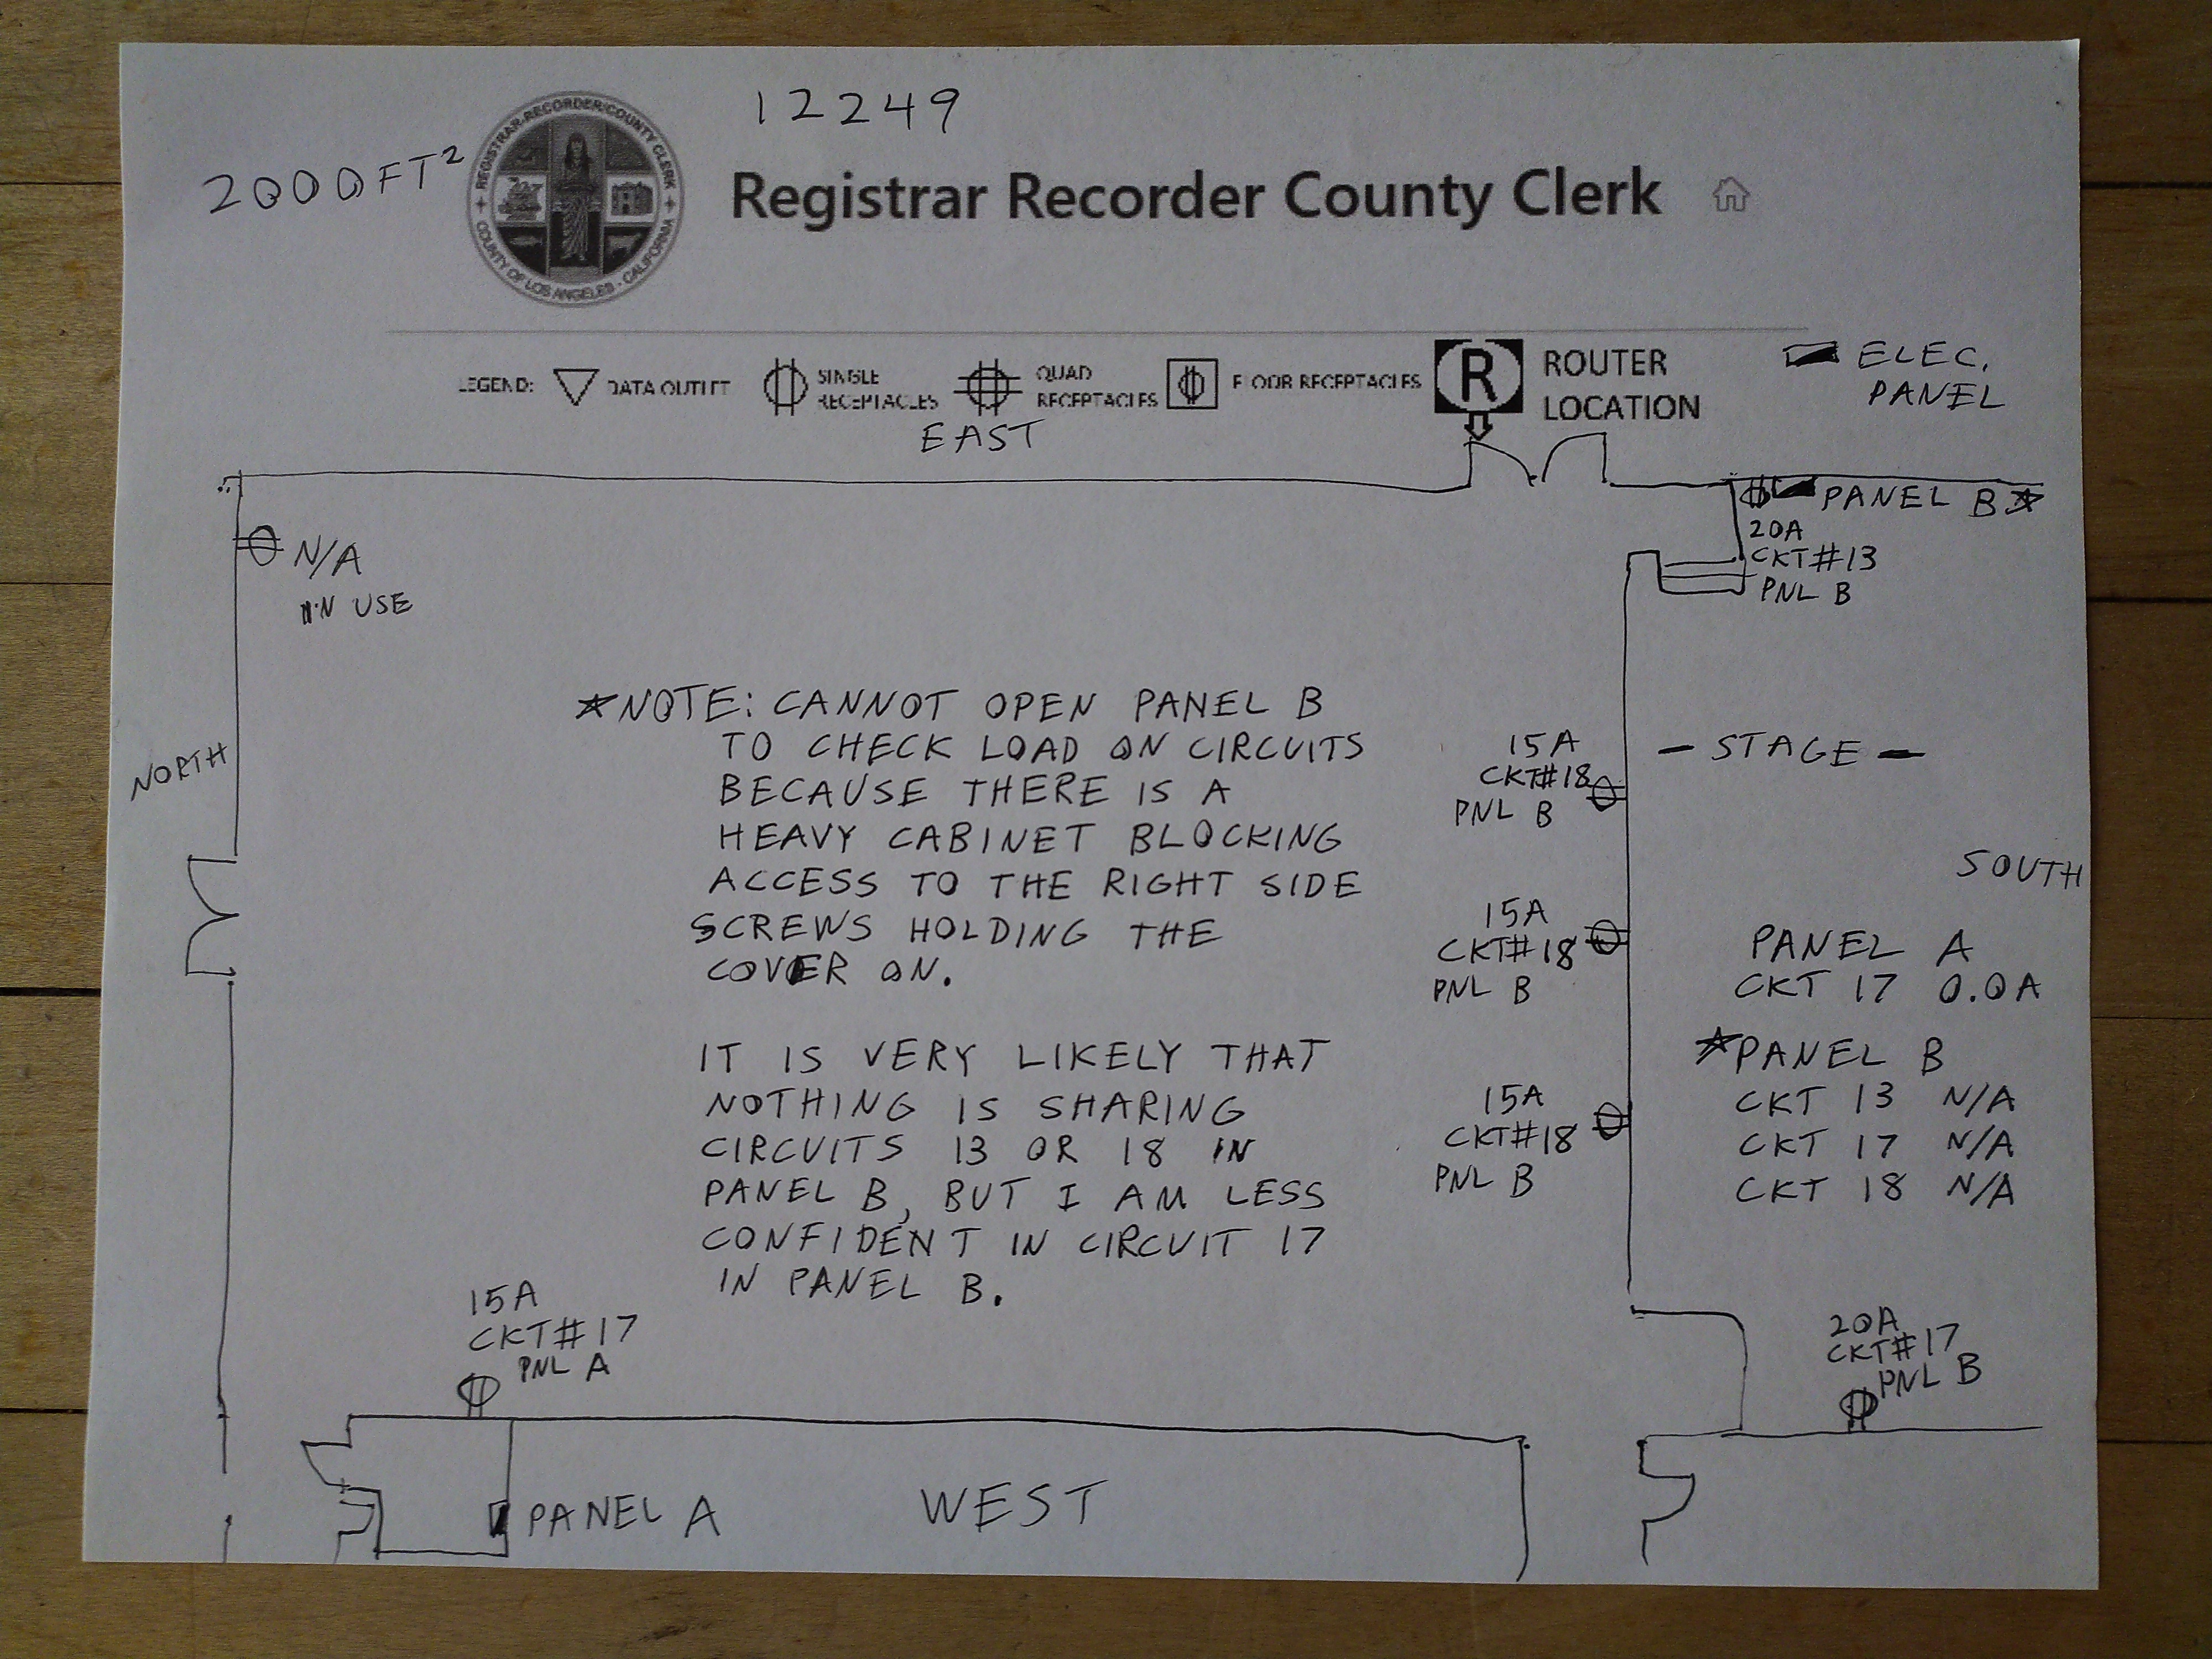 12249
2000FT²
REGISTRAR-RECORDER/COUNTY CLERK
COUNTY OF LOS ANGELES - CALIFORNIA
Registrar Recorder County Clerk
LEGEND:
DATA OUTLET
SINGLE
RECEPTACLES
QUAD
RECEPTACLES
FLOOR RECEPTACLES
R
ROUTER
LOCATION
ELEC.
PANEL
EAST
PANEL B
20A
CKT#13
PNL B
N/A
IN USE
NORTH
*NOTE: CANNOT OPEN PANEL B
TO CHECK LOAD ON CIRCUITS
BECAUSE THERE IS A
HEAVY CABINET BLOCKING
ACCESS TO THE RIGHT SIDE
SCREWS HOLDING THE
COVER ON.
IT IS VERY LIKELY THAT
NOTHING IS SHARING
CIRCUITS 13 OR 18 IN
PANEL B, BUT I AM LESS
CONFIDENT IN CIRCUIT 17
IN PANEL B.
15A
CKT#18
PNL B
15A
CKT#18
PNL B
15A
CKT#18
PNL B
- STAGE -
SOUTH
PANEL A
CKT 17 0.0A
*PANEL B
CKT 13 N/A
CKT 17 N/A
CKT 18 N/A
15A
CKT#17
PNL A
20A
CKT#17
PNL B
PANEL A
WEST